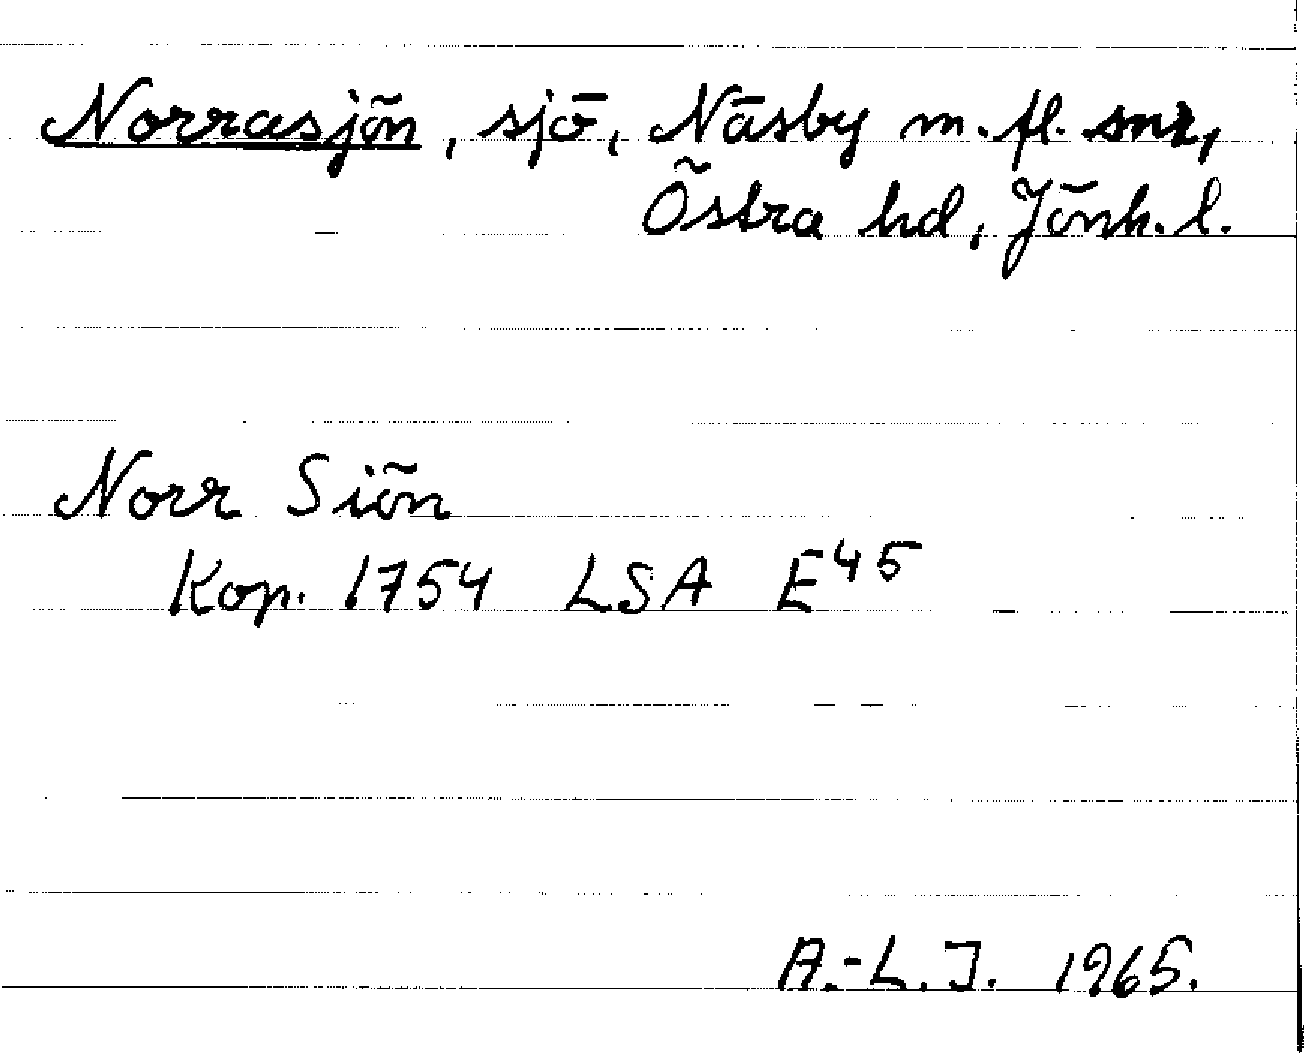 Norrasjön, sjö, Näsby m. fl. snr,
Östra hd, Jönk. l.
Norr Siön
Kop. 1754 LSA E45
A.-L. J. 1965.